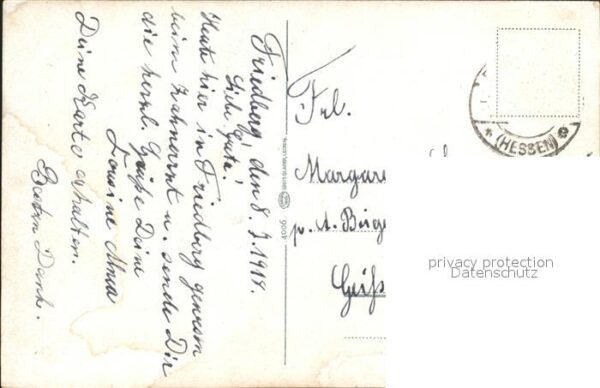 Friedberg, den 8. 7. 1919.
Liebe Gute!
Heute hier in Friedberg gewesen
beim Zahnarzt u. sende Dir
die herzl. Grüße Deine
Cousine Alma
Deine Karte erhalten.
Besten Dank.
9009
Frl.
Margare
p. A. Bürge
Geiß
(HESSEN)
privacy protection
Datenschutz